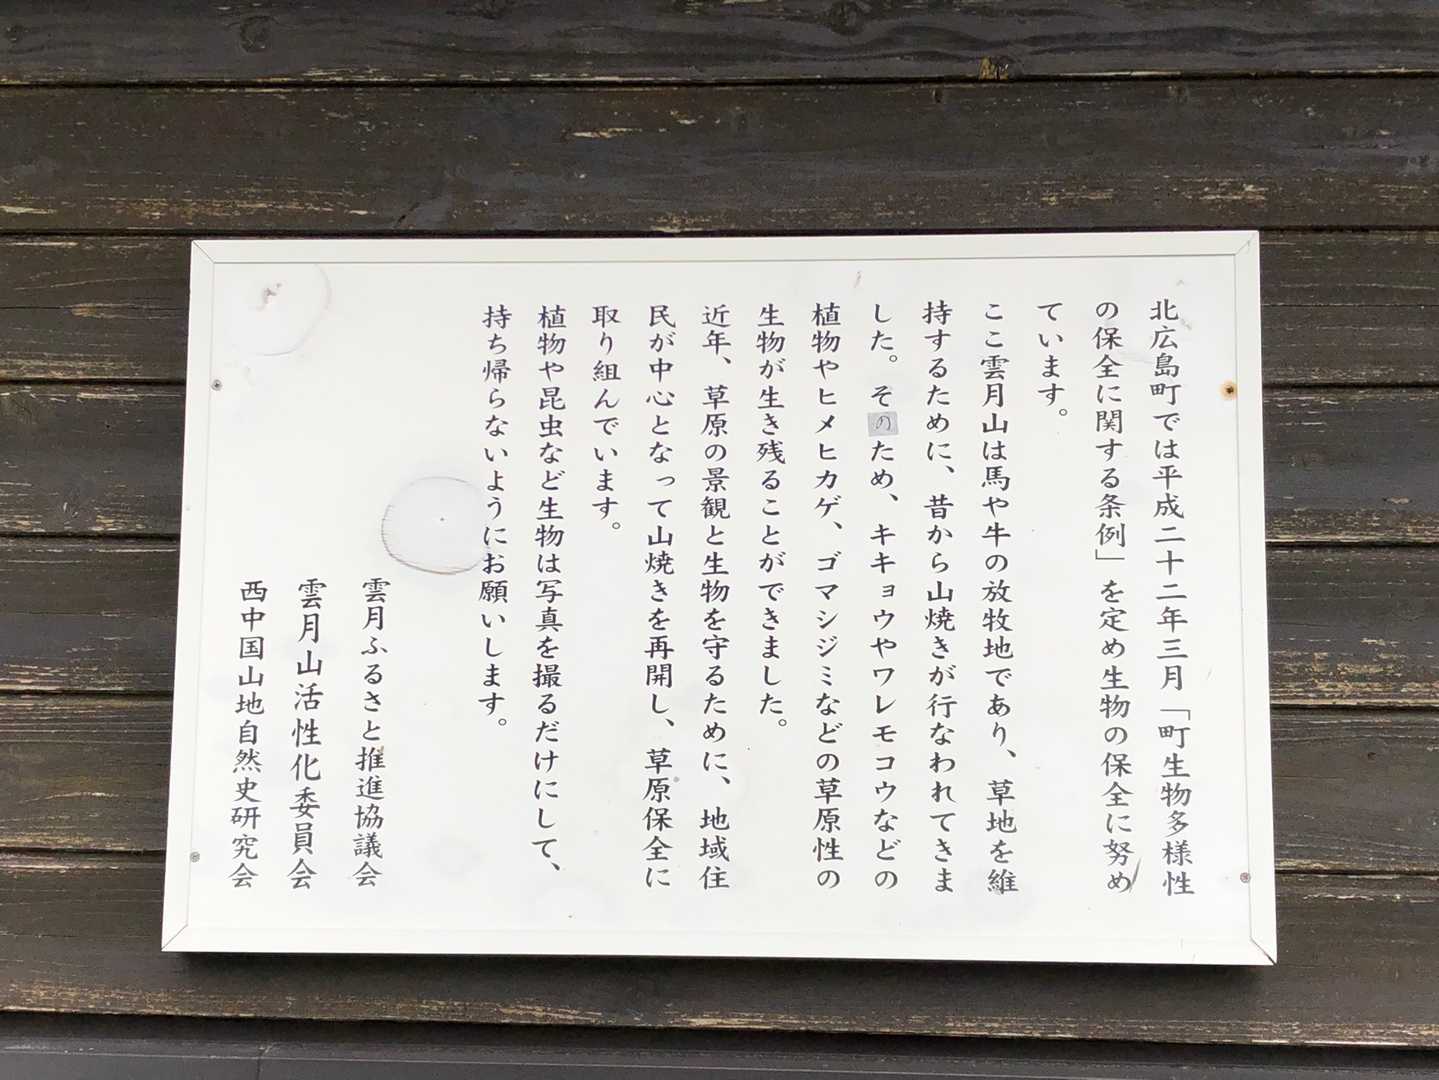 北広島町では平成二十二年三月「町生物多様性
の保全に関する条例」を定め生物の保全に努め
ています。
ここ雲月山は馬や牛の放牧地であり、草地を維
持するために、昔から山焼きが行なわれてきま
した。そのため、キキョウやワレモコウなどの
植物やヒメヒカゲ、ゴマシジミなどの草原性の
生物が生き残ることができました。
近年、草原の景観と生物を守るために、地域住
民が中心となって山焼きを再開し、草原保全に
取り組んでいます。
植物や昆虫など生物は写真を撮るだけにして、
持ち帰らないようにお願いします。
雲月ふるさと推進協議会
雲月山活性化委員会
西中国山地自然史研究会